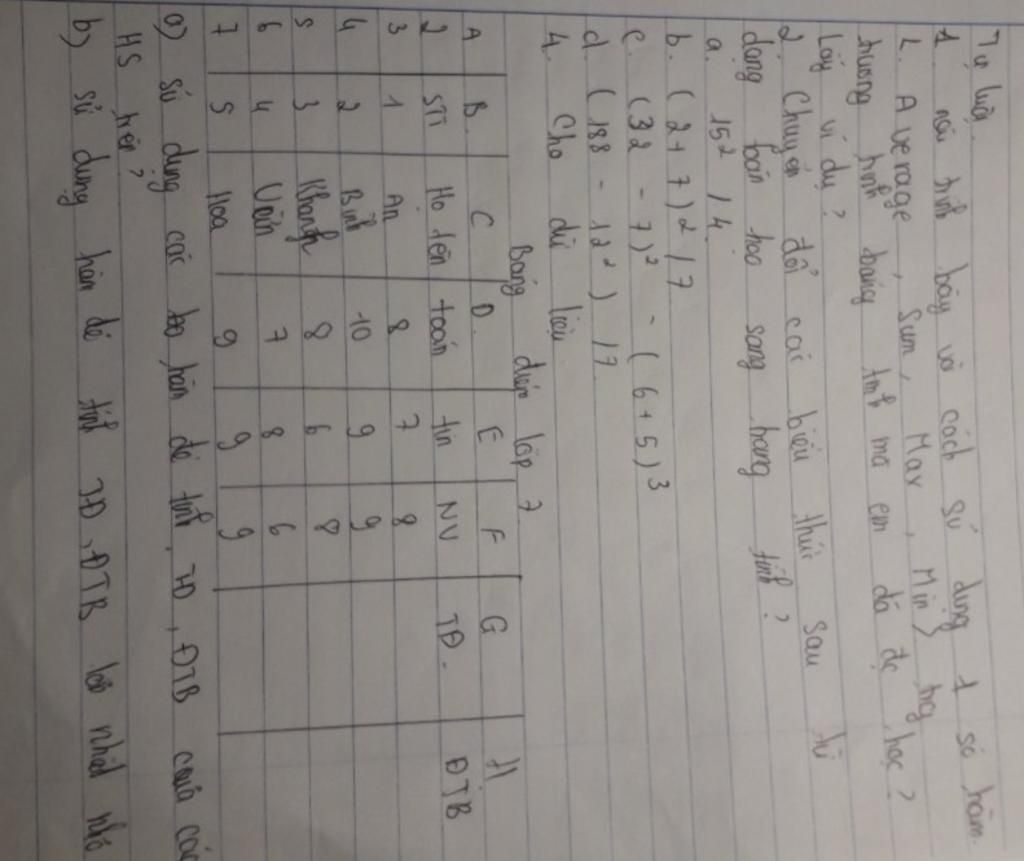 Tự luận
1. nói trình bày về cách sử dụng 1 số hàm.
L. Average, Sum, Max, Min} trg
chương trình bảng tính mà em đã đc học?
Lấy ví dụ?
2. Chuyển đổi các biểu thức sau từ
dạng toán học sang trang tính?
a. 15² / 4.
b. (2 + 7)² / 7
c. (32 - 7)² - (6 + 5)³
d. (188 - 12²) / 7.
4. Cho dữ liệu
Bảng điểm lớp 7
A B C D. E F G H
2 STT Họ tên toán tin NV TĐ. ĐTB
3 1 An 8 7 8
4 2 Bình 10 9 9
5 3 Khanh 8 6 8
6 4 Vân 7 8 6
7 5 Hoa 9 9 9
a) sử dụng các hàm để tính TĐ, ĐTB của các
HS trên?
b) sử dụng hàm để tính TĐ, ĐTB lớn nhất nhỏ